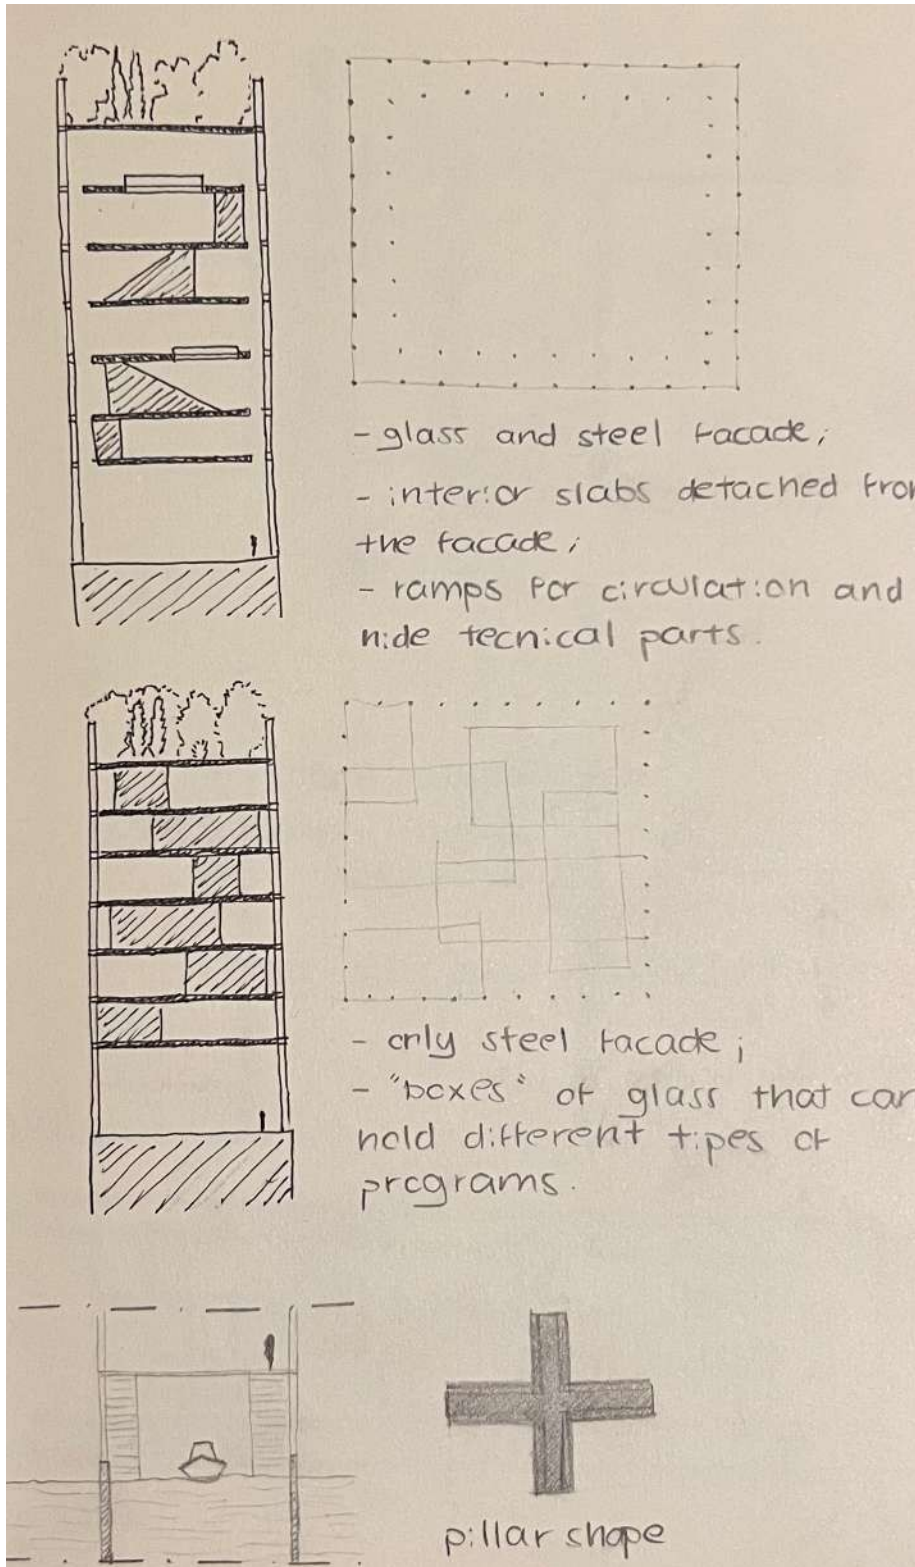 - glass and steel facade;
- interior slabs detached from
the facade;
- ramps for circulation and
hide tecnical parts.
- only steel facade;
- "boxes" of glass that can
hold different types of
programs.
pillar shape